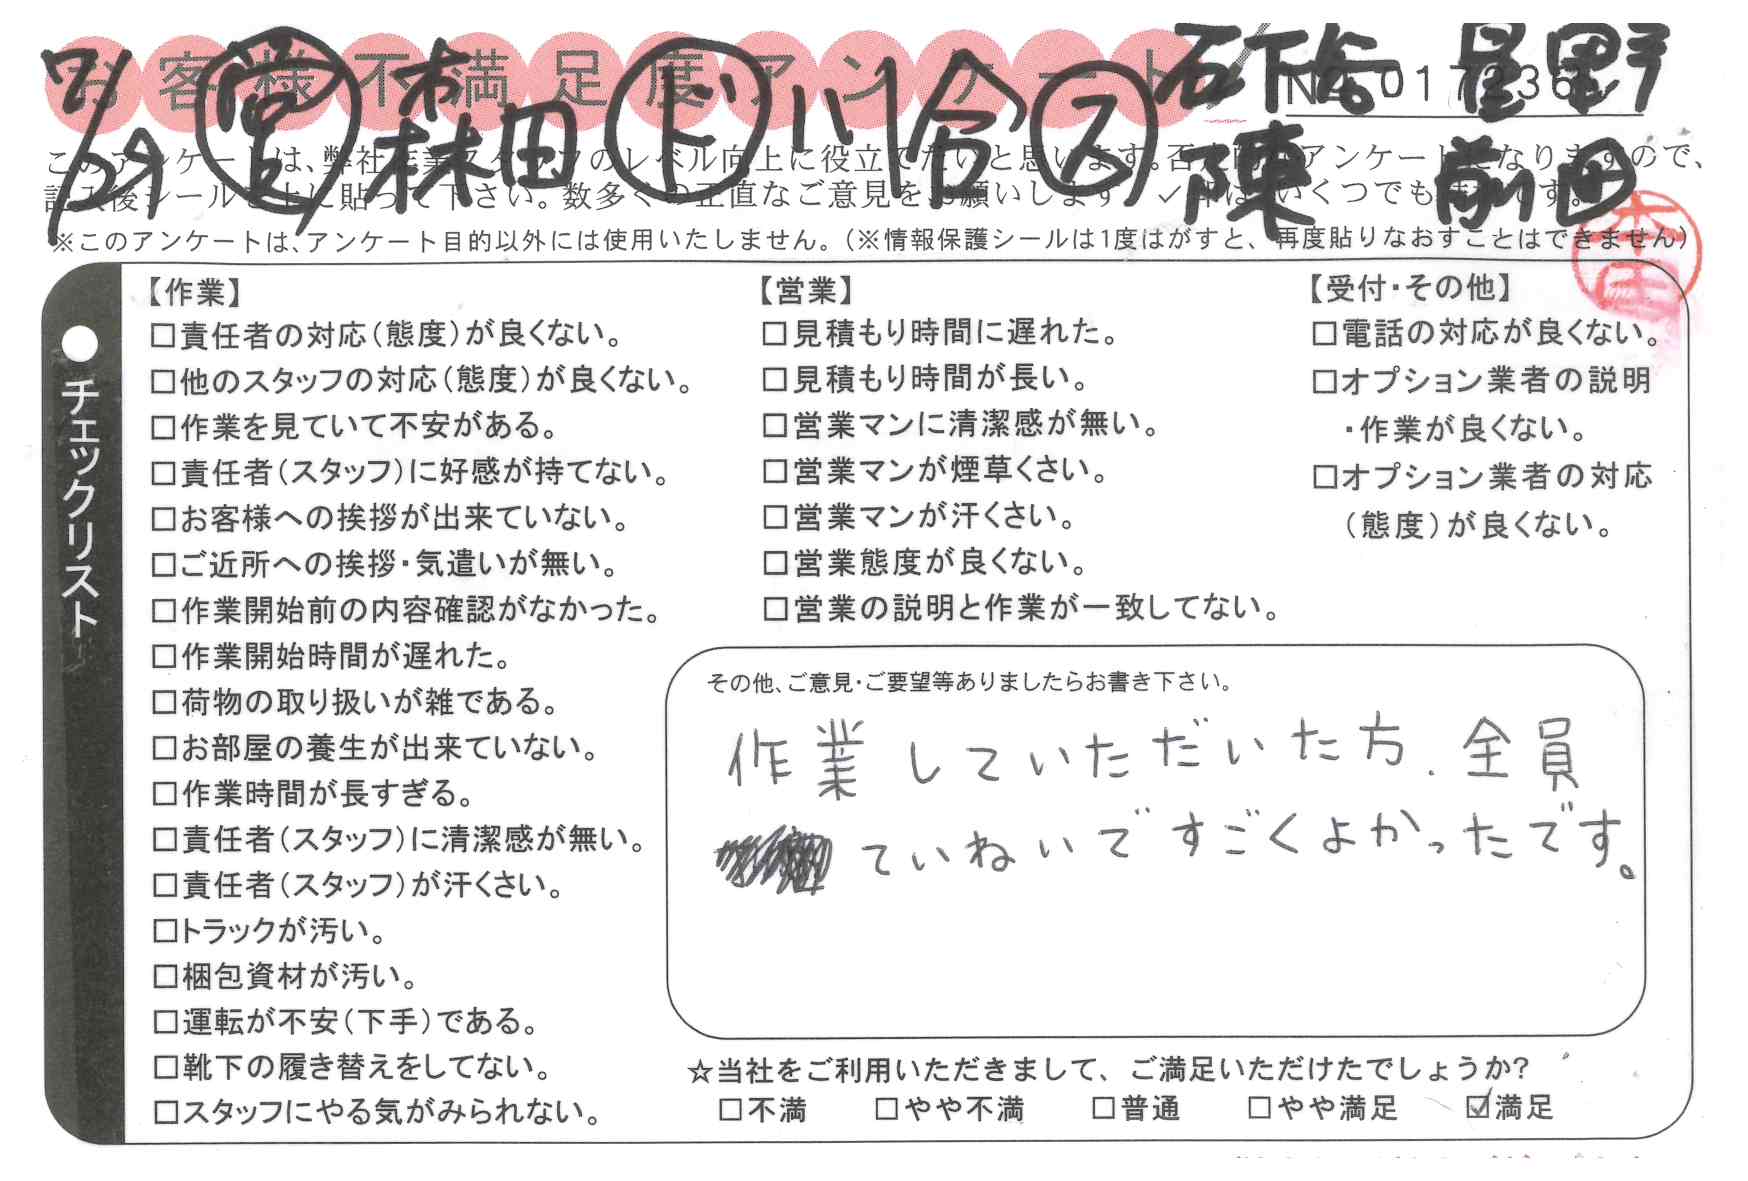 お客様不満足度アンケート
7/29 営 森田 ド 小谷 ス 石下谷 星野
陳 前田
No 0172361
このアンケートは、弊社作業スタッフのレベル向上に役立てたいと思います。否定的なアンケートになりますので、
記入後シールを上に貼って下さい。数多くの正直なご意見をお願いします。✓印はいくつでも結構です。
※このアンケートは、アンケート目的以外には使用いたしません。(※情報保護シールは1度はがすと、再度貼りなおすことはできません)
チェックリスト
【作業】
□責任者の対応(態度)が良くない。
□他のスタッフの対応(態度)が良くない。
□作業を見ていて不安がある。
□責任者(スタッフ)に好感が持てない。
□お客様への挨拶が出来ていない。
□ご近所への挨拶・気遣いが無い。
□作業開始前の内容確認がなかった。
□作業開始時間が遅れた。
□荷物の取り扱いが雑である。
□お部屋の養生が出来ていない。
□作業時間が長すぎる。
□責任者(スタッフ)に清潔感が無い。
□責任者(スタッフ)が汗くさい。
□トラックが汚い。
□梱包資材が汚い。
□運転が不安(下手)である。
□靴下の履き替えをしてない。
□スタッフにやる気がみられない。
【営業】
□見積もり時間に遅れた。
□見積もり時間が長い。
□営業マンに清潔感が無い。
□営業マンが煙草くさい。
□営業マンが汗くさい。
□営業態度が良くない。
□営業の説明と作業が一致してない。
【受付・その他】
□電話の対応が良くない。
□オプション業者の説明
・作業が良くない。
□オプション業者の対応
(態度)が良くない。
その他、ご意見・ご要望等ありましたらお書き下さい。
作業していただいた方、全員
ていねいですごくよかったです。
☆当社をご利用いただきまして、ご満足いただけたでしょうか?
□不満 □やや不満 □普通 □やや満足 ☑満足